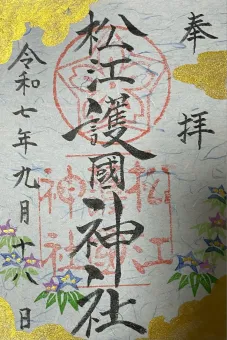 奉拝
松江護國神社
令和七年九月十八日
松江
神社